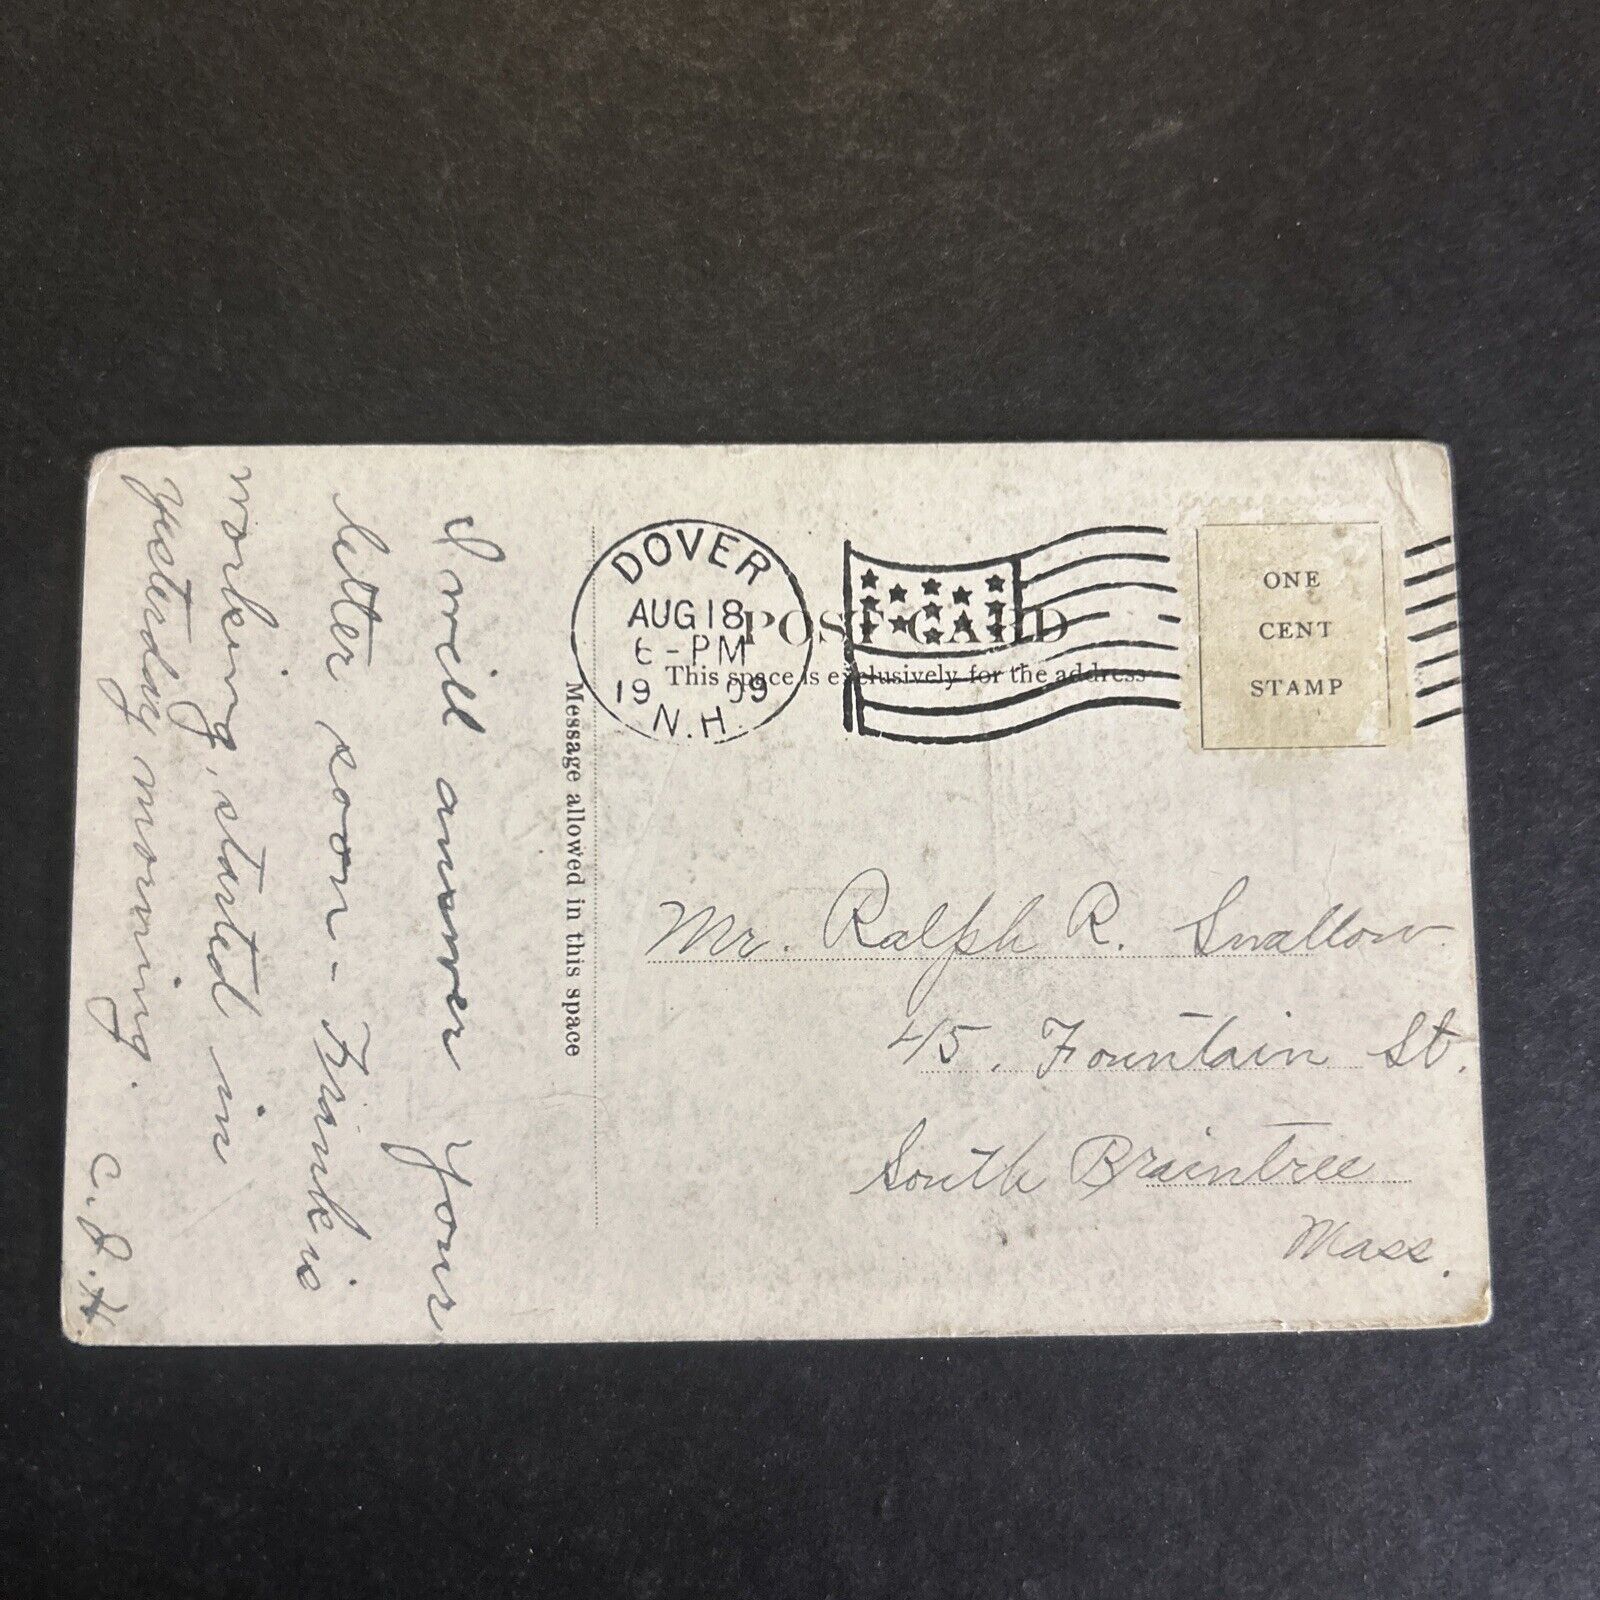 I will answer your
letter soon - Frank is
working, started in
yesterday morning.
C. J. H
Message allowed in this space
DOVER
AUG 18
6 - PM
19 09
N.H.
POST CARD
This space is exclusively for the address
ONE
CENT
STAMP
Mr. Ralph R. Swallow
45, Fountain St.
South Braintree
Mass.